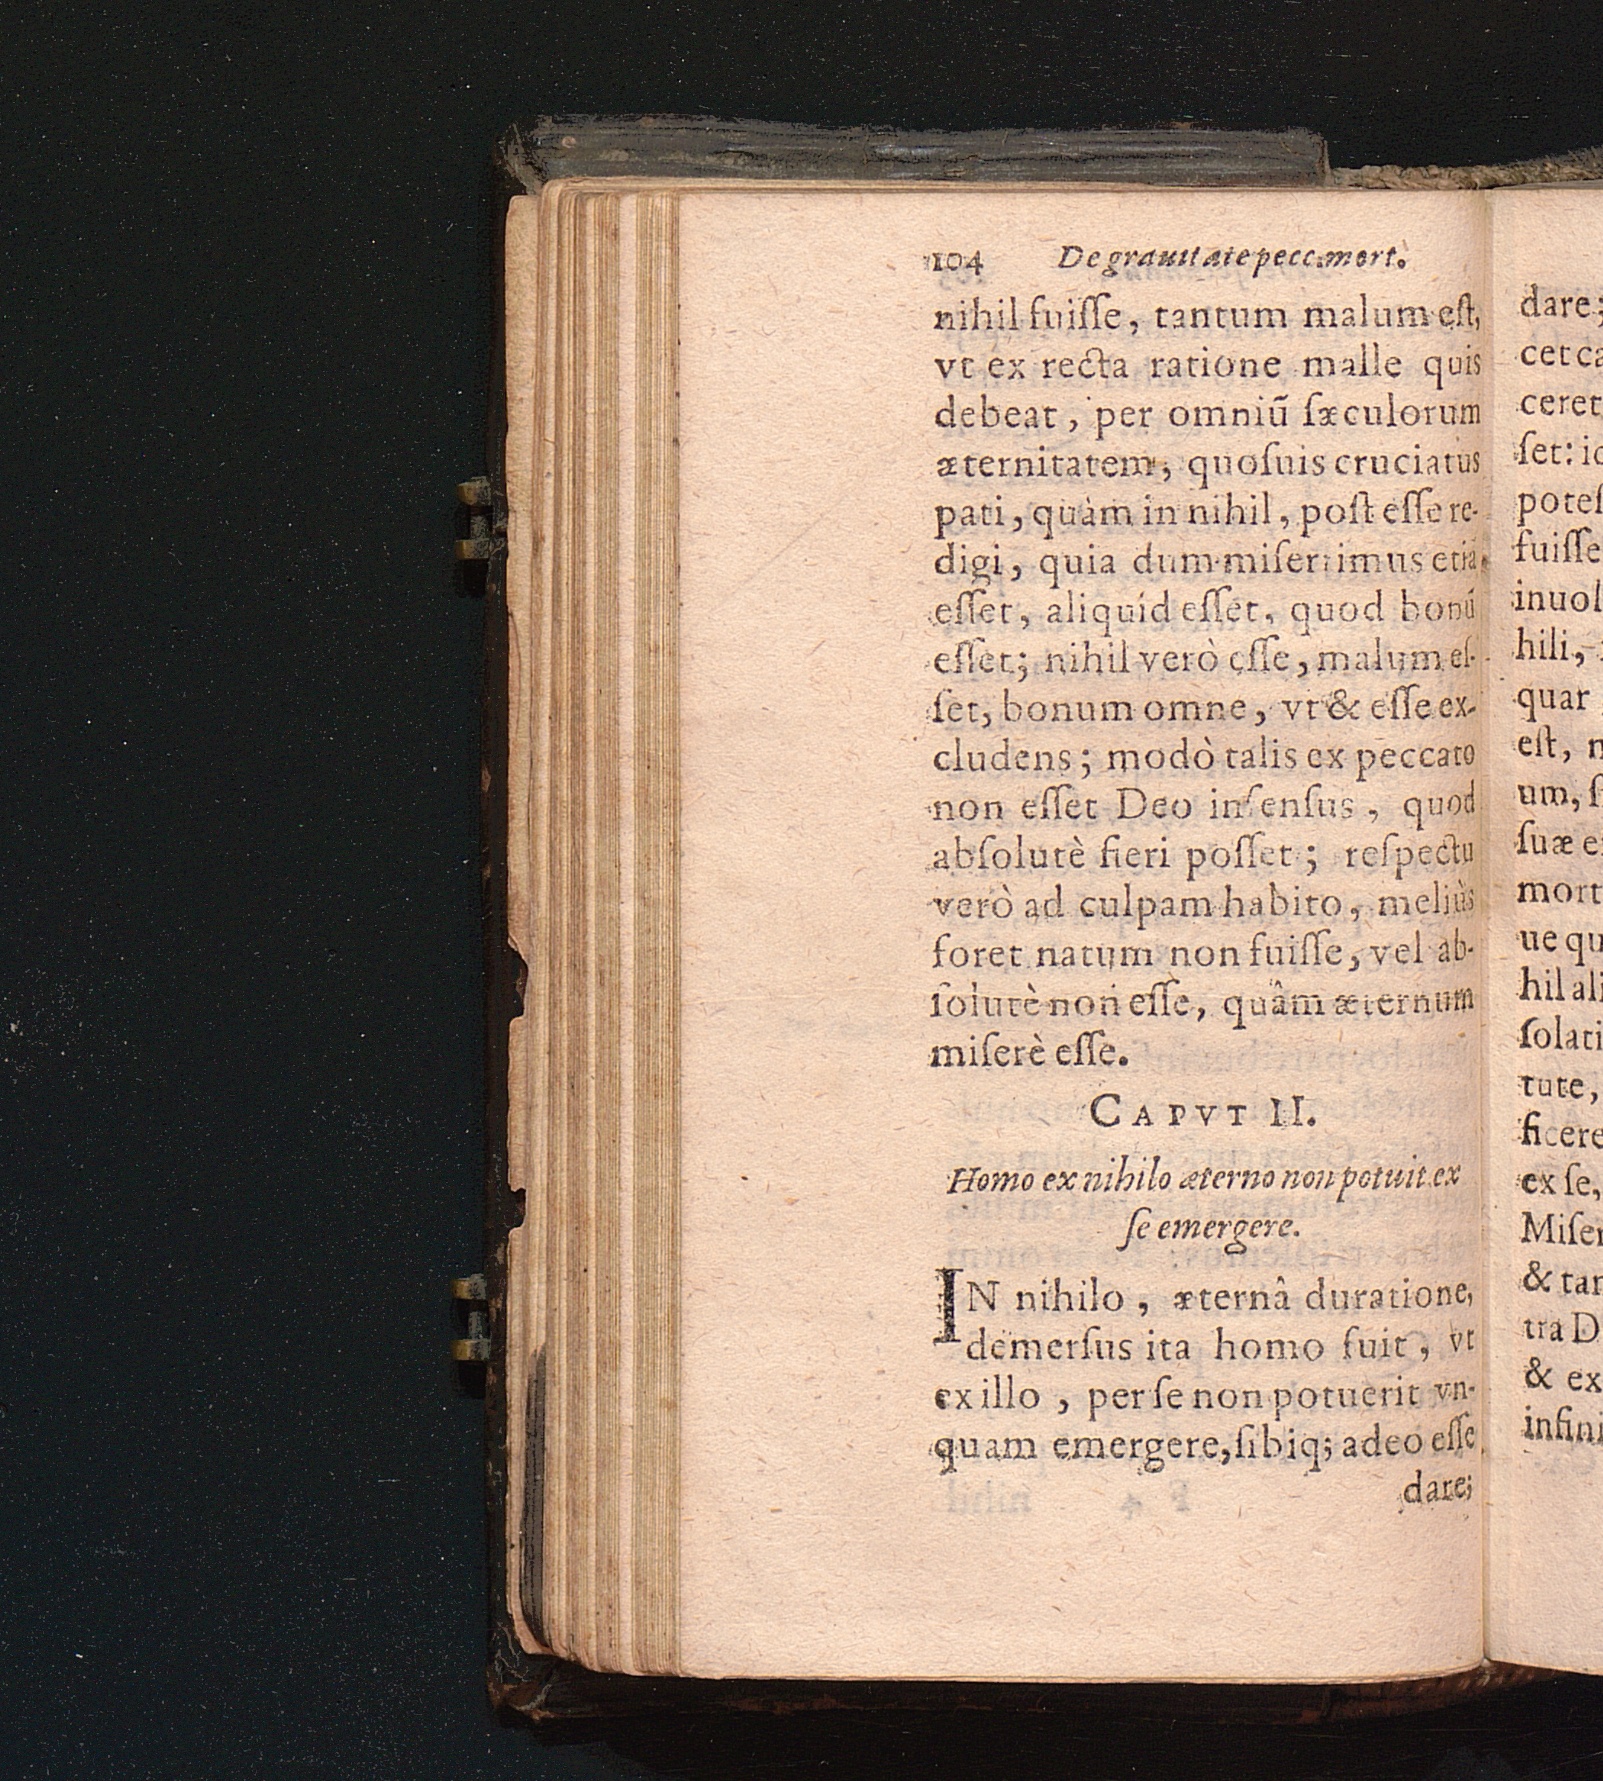 104 De grauitate pecc. mort.
nihil fuiſſe, tantum malum eſt,
vt ex recta ratione malle quis
debeat, per omniũ ſæculorum
æternitatem, quoſuis cruciatus
pati, quàm in nihil, poſt eſſe re-
digi, quia dum miſerrimus etiã
eſſet, aliquid eſſet, quod bonũ
eſſet; nihil verò eſſe, malum eſ-
ſet, bonum omne, vt & eſſe ex-
cludens; modò talis ex peccato
non eſſet Deo inſenſus, quod
abſolutè fieri poſſet; reſpectu
verò ad culpam habito, meliùs
foret natum non fuiſſe, vel ab-
ſolutè non eſſe, quâm æternum
miſerè eſſe.
CAPVT II.
Homo ex nihilo æterno non potuit ex
ſe emergere.
IN nihilo, æternâ duratione,
demerſus ita homo fuit, vt
ex illo, per ſe non potuerit vn-
quam emergere, ſibiq; adeo eſſe
dare;
dare;
cet ca
ceret
ſet: id
poteſ
fuiſſe
inuol
hili,
quar
eſt, n
um, ſ
ſuæ e
mort
ue qu
hil ali
ſolati
tute,
ficere
ex ſe,
Miſer
& tan
tra D
& ex
infini